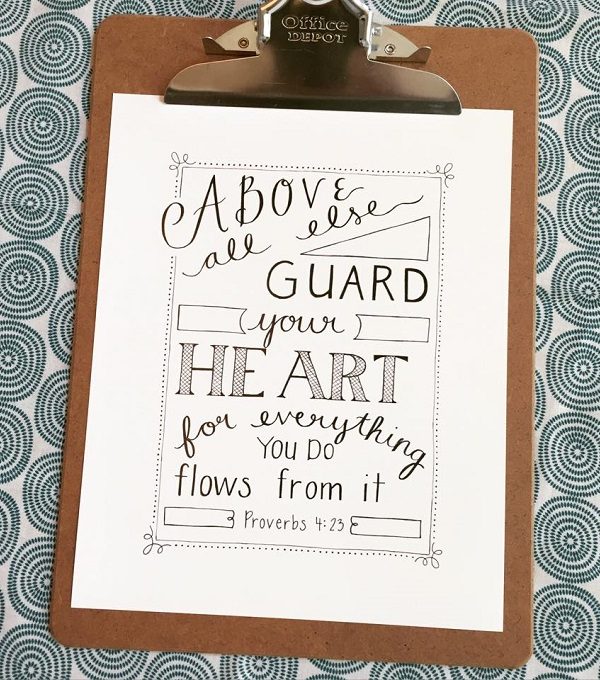 Office
DEPOT
ABOVE
all else
GUARD
your
HEART
for everything
YOU DO
flows from it
Proverbs 4:23